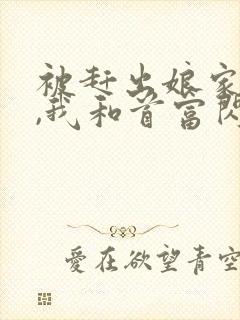 被赶出娘家
,我和首富闪
爱在欲望青空